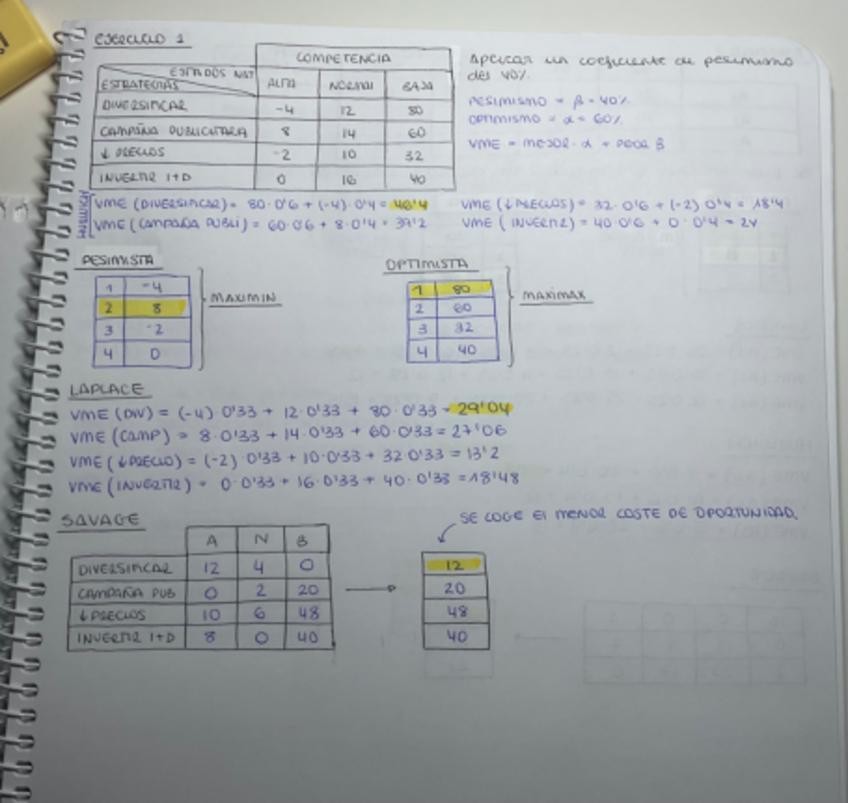 EJERCICIO 1
COMPETENCIA
ESTADOS NAT
ESTRATEGIAS ALTA NORMAL BAJA
DIVERSIFICAR -4 12 80
CAMPAÑA PUBLICITARIA 8 14 60
↓ PRECIOS -2 10 32
INVERTIR I+D 0 16 40
Aplicar un coeficiente de pesimismo
del 40%.
PESIMISMO = β = 40%
OPTIMISMO = α = 60%
VME = MEJOR · α + PEOR β
VME (DIVERSIFICAR) = 80·0'6 + (-4)·0'4 = 46'4
VME (CAMPAÑA PUBLI) = 60·0'6 + 8·0'4 = 39'2
VME (↓ PRECIOS) = 32·0'6 + (-2) 0'4 = 18'4
VME (INVERTIR) = 40·0'6 + 0·0'4 = 24
PESIMISTA
1 -4
2 8
3 -2
4 0
MAXIMIN
OPTIMISTA
1 80
2 60
3 32
4 40
MAXIMAX
LAPLACE
VME (DIV) = (-4) 0'33 + 12·0'33 + 80·0'33 = 29'04
VME (CAMP) = 8·0'33 + 14·0'33 + 60·0'33 = 27'06
VME (↓PRECIO) = (-2) 0'33 + 10·0'33 + 32·0'33 = 13'2
VME (INVERTIR) = 0·0'33 + 16·0'33 + 40·0'33 = 18'48
SAVAGE
SE COGE El MENOR COSTE DE OPORTUNIDAD.
A N B
DIVERSIFICAR 12 4 0 → 12
CAMPAÑA PUB 0 2 20 20
↓ PRECIOS 10 6 48 48
INVERTIR I+D 8 0 40 40